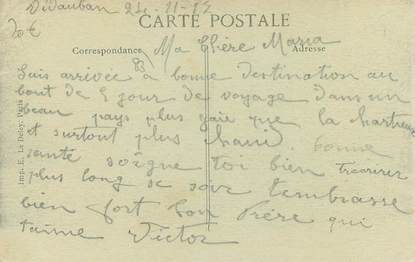 Vidauban 24-11-12
CARTE POSTALE
20 €
Correspondance
Ma Chère Maria
Adresse
Suis arrivée à bonne destination au
bout de 5 jour de voyage dans un
beau pays plus gaie que la chartreuse
et surtout plus chaud. bonne
santé soigne toi bien
plus long se soir tembrasse
bien fort ton Frère qui
t'aime Victor
Imp. E. Le Deley, Paris